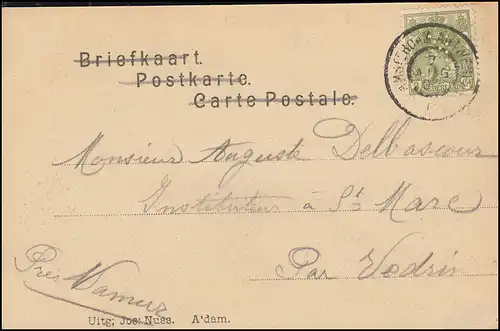 Briefkaart.
Postkarte.
Carte Postale.
Monsieur Auguste Delbascour
Instituteur à St Marc
Par Vedrin
Près Namur
Uitg; Jos: Nuss. A'dam.